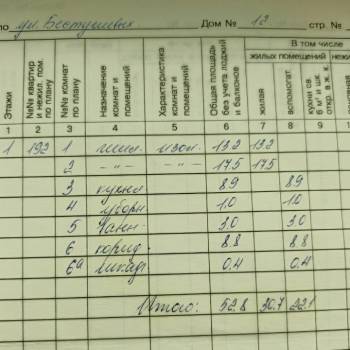 по ул. Бестужевых Дом № 12 стр. №
Этажи
№№ квартир и нежил. пом. по плану
№№ комнат по плану
Назначение комнат и помещений
Характеристика комнат и помещений
Общая площадь без учета лоджий и балконов
В том числе
жилых помещений
нежи
жилая
вспомогат.
кухни св. 6 м² и шк. откр. в ж. к.
1 2 3 4 5 6 7 8 9
1 192 1 жил. изол. 13.2 13.2
2 -"- -"- 17.5 17.5
3 кухня 8.9 8.9
4 уборн. 1.0 1.0
5 ванн. 3.0 3.0
6 корид. 8.8 8.8
6а шкаф 0.4 0.4
Итого: 52.8 30.7 22.1